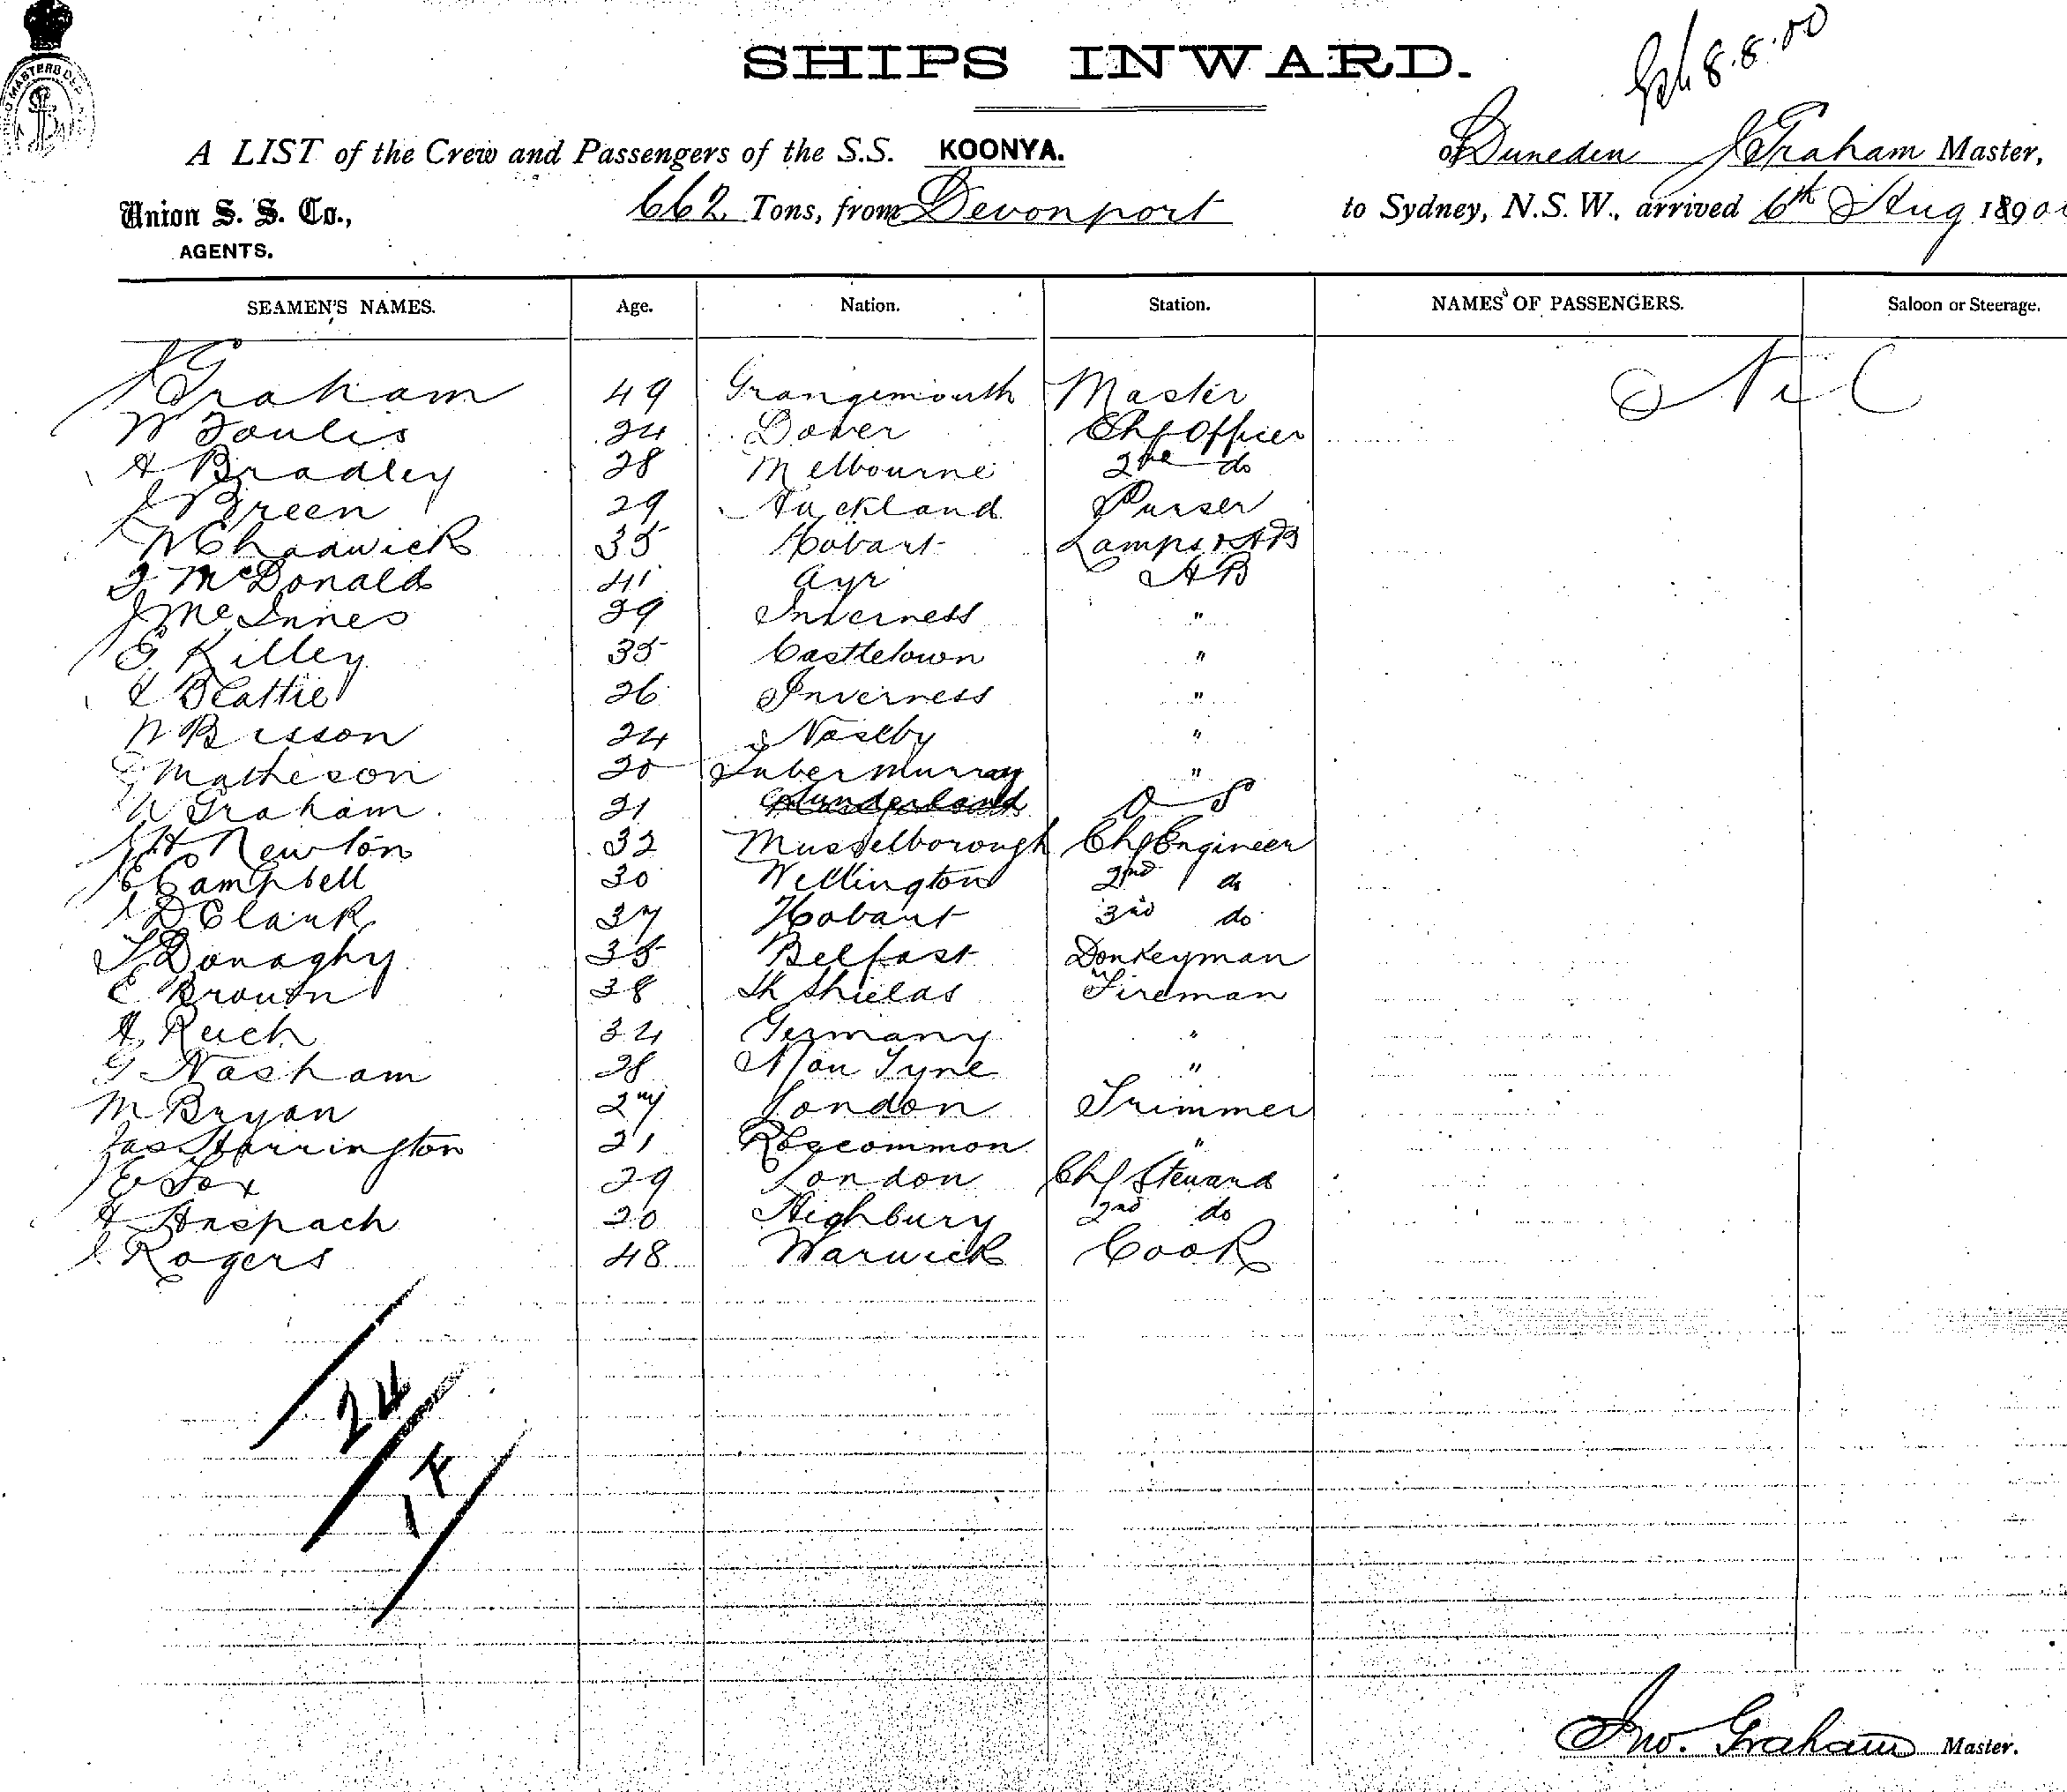 SHIPS INWARD.
8.8.00
A LIST of the Crew and Passengers of the S.S. KOONYA. of Duneden J Graham Master,
Union S. S. Co., 662 Tons, from Devonport to Sydney, N.S.W., arrived 6th Aug 1890
AGENTS.
SEAMEN'S NAMES. Age. Nation. Station. NAMES OF PASSENGERS. Saloon or Steerage.
J Graham 49 Grangemouth Master Nil
W Foulis 24 Dover Chf Officer
A Bradley 28 Melbourne 2nd do
J Breen 29 Auckland Purser
W Chadwick 35 Hobart Lamps & AB
J McDonald 41 Ayr AB
J McInnes 29 Inverness "
G Killey 35 Castletown "
A Beattie 26 Inverness "
W Bisson 24 Naseby "
Matheson 20 Tubermurray "
W Graham 21 Sunderland O S
J H Newton 32 Musselborough Chf Engineer
C Campbell 30 Wellington 2nd do
J D Clark 37 Hobart 3rd do
J Donaghy 35 Belfast Donkeyman
C Brown 38 Sh Shields Fireman
A Ruch 34 Germany "
G Nasham 28 N on Tyne "
M Bryan 27 London Trimmer
Jas Harrington 21 Roscommon "
E Fox 29 London Chf Steward
A Anspach 20 Highbury 2nd do
J Rogers 48 Warwick Cook
24
1 F
Jno. Graham Master.